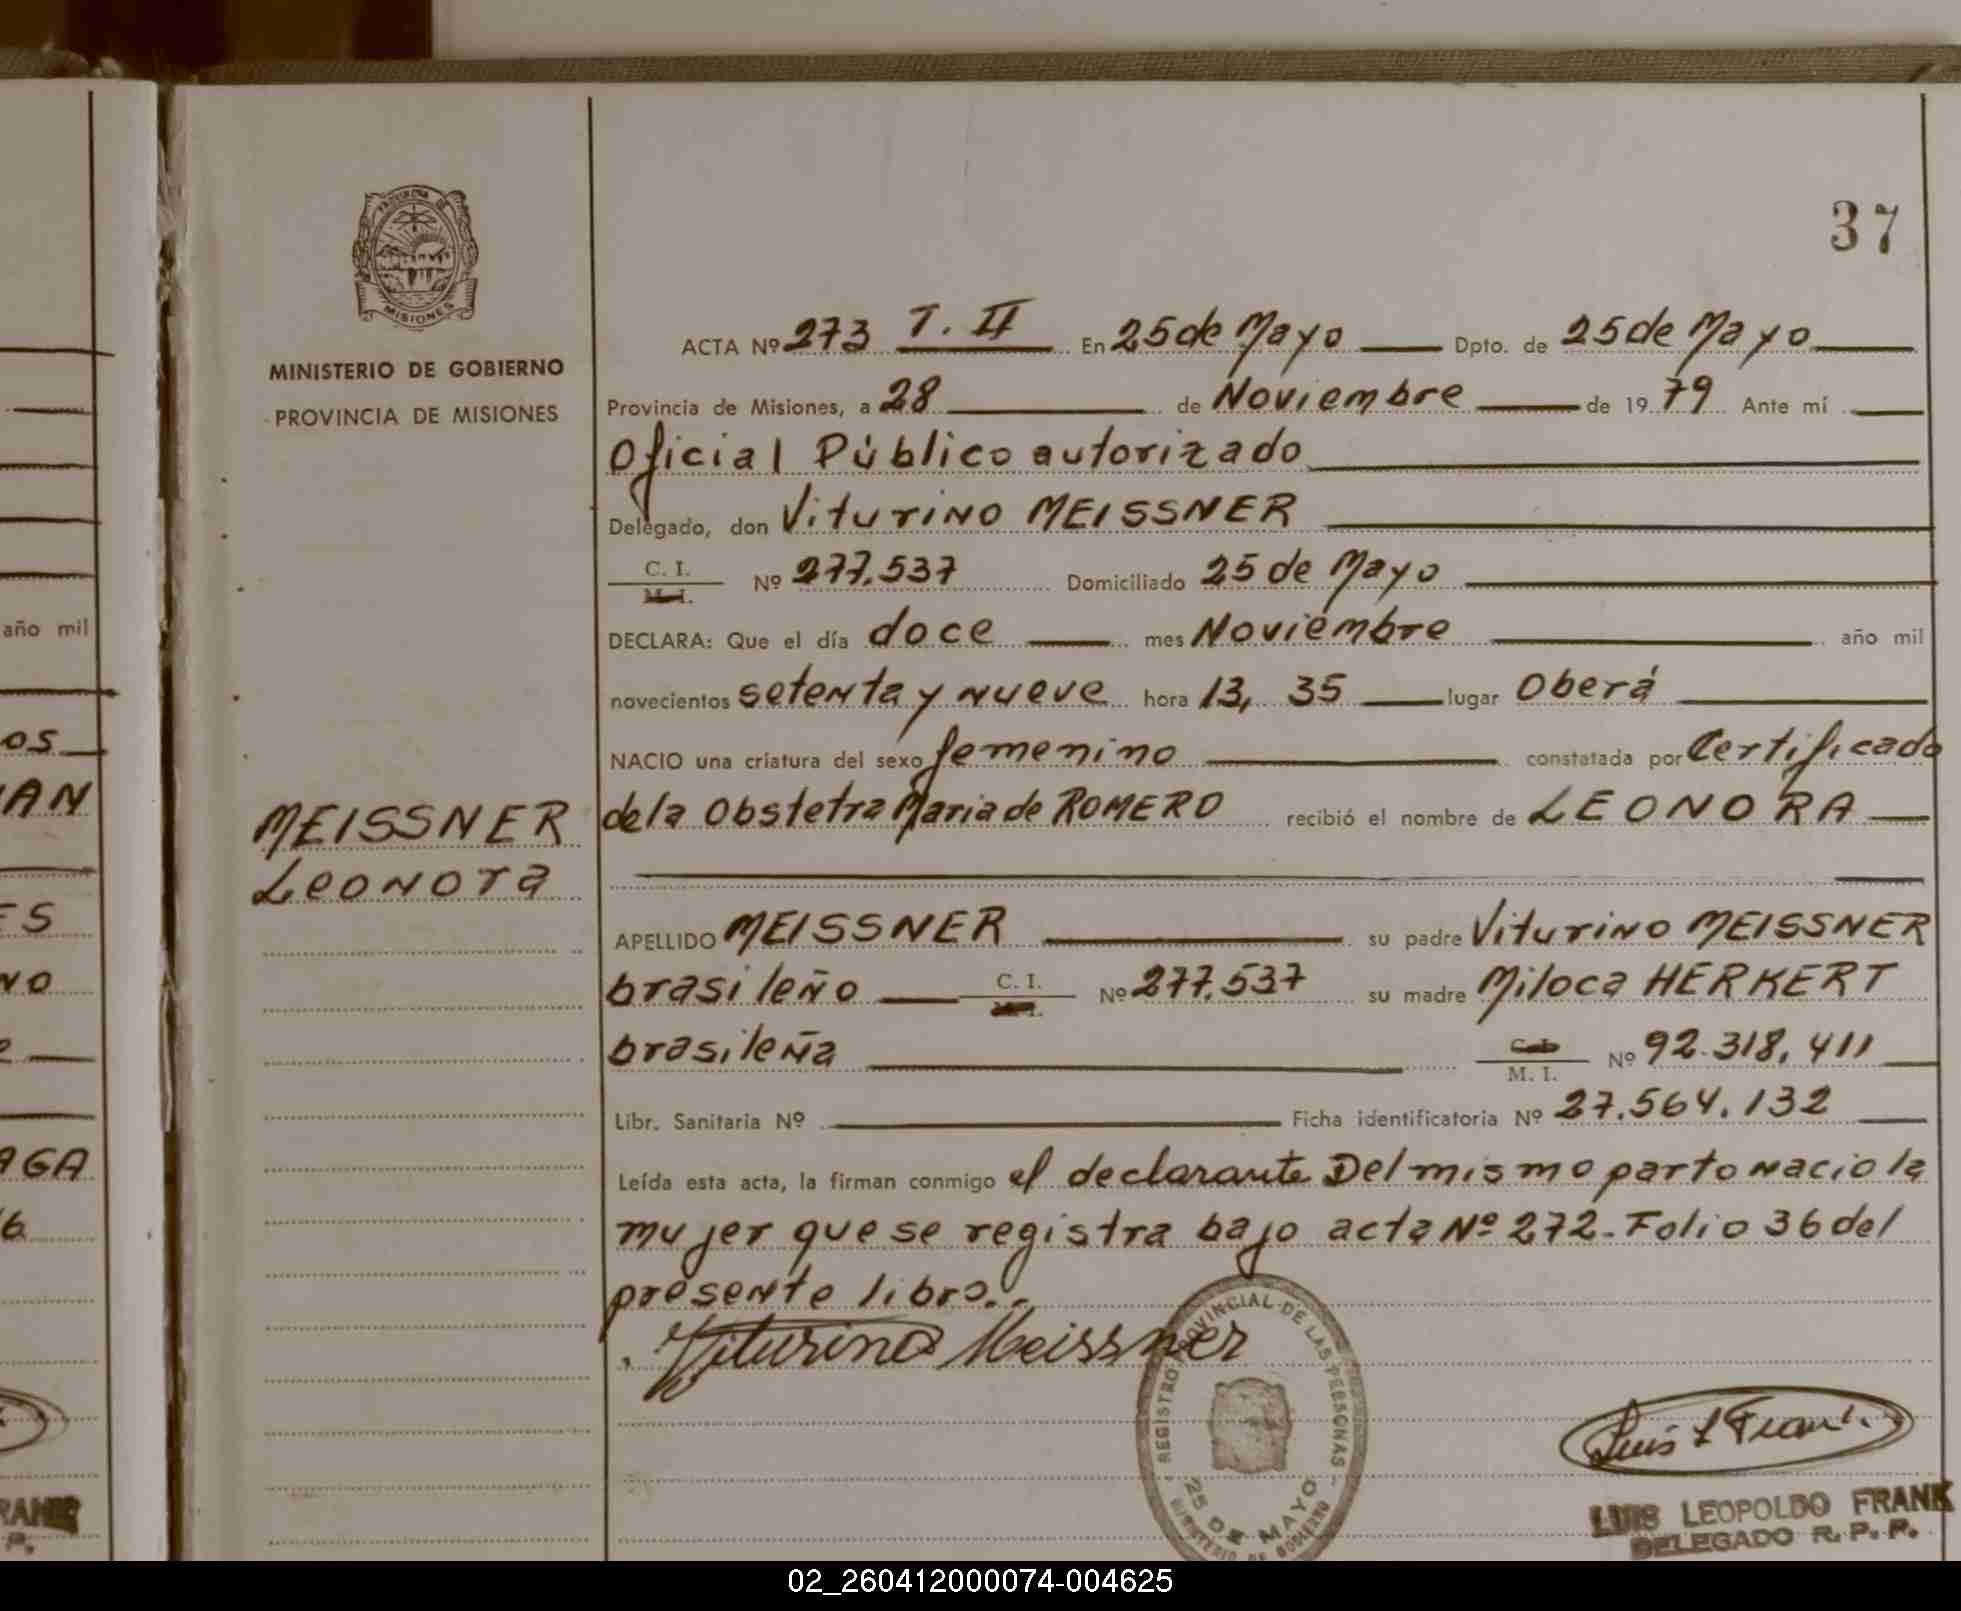 37
PROVINCIA DE
MISIONES
MINISTERIO DE GOBIERNO
PROVINCIA DE MISIONES
ACTA Nº 273 T. II En 25 de Mayo Dpto. de 25 de Mayo
Provincia de Misiones, a 28 de Noviembre de 1979 Ante mí
Oficial Público autorizado
Delegado, don Viturino MEISSNER
C. I. M. I. Nº 277.537 Domiciliado 25 de Mayo
DECLARA: Que el día doce mes Noviembre año mil
novecientos setenta y nueve hora 13, 35 lugar Oberá
NACIO una criatura del sexo femenino constatada por Certificado
de la Obstetra Maria de ROMERO recibió el nombre de LEONORA
MEISSNER
Leonora
APELLIDO MEISSNER su padre Viturino MEISSNER
brasileño C. I. M. I. Nº 277.537 su madre Miloca HERKERT
brasileña C. I. M. I. Nº 92.318.411
Libr. Sanitaria Nº Ficha identificatoria Nº 27.564.132
Leída esta acta, la firman conmigo el declarante Del mismo parto nacio la
mujer que se registra bajo acta Nº 272 - Folio 36 del
presente libro.-
Viturino Meissner
REGISTRO PROVINCIAL DE LAS PERSONAS
25 DE MAYO
MINISTERIO DE GOBIERNO
Luis L Frank
LUIS LEOPOLDO FRANK
DELEGADO R. P. P.
año mil
os
AN
ES
NO
AGA
02_260412000074-004625